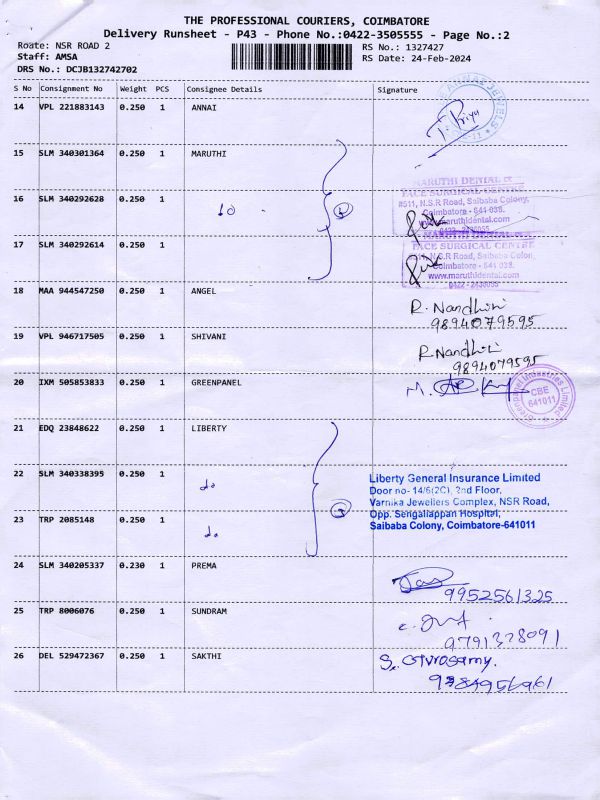 THE PROFESSIONAL COURIERS, COIMBATORE
Delivery Runsheet - P43 - Phone No.:0422-3505555 - Page No.:2
Roate: NSR ROAD 2 RS No.: 1327427
Staff: AMSA RS Date: 24-Feb-2024
DRS No.: DCJB132742702
S No Consignment No Weight PCS Consignee Details Signature
14 VPL 221883143 0.250 1 ANNAI
T. Priya
15 SLM 340301364 0.250 1 MARUTHI
MARUTHI DENTAL &
FACE SURGICAL CENTRE
16 SLM 340292628 0.250 1 #511, N.S.R Road, Saibaba Colony,
Coimbatore - 641 038.
www.maruthidental.com
0422 - 2436055
MARUTHI DENTAL &
17 SLM 340292614 0.250 1 FACE SURGICAL CENTRE
N.S.R Road, Saibaba Colony,
Coimbatore - 641 038.
www.maruthidental.com
0422 - 2436055
18 MAA 944547250 0.250 1 ANGEL
R. Nandhini
9894079595
19 VPL 946717505 0.250 1 SHIVANI
R Nandhini
9894079595
20 IXM 505853833 0.250 1 GREENPANEL
Greenpanel Industries Limited
CBE
641011
21 EDQ 23848622 0.250 1 LIBERTY
22 SLM 340338395 0.250 1 do
Liberty General Insurance Limited
Door no- 14/6(2C), 2nd Floor,
Varnika Jewellers Complex, NSR Road,
Opp. Sengaliappan Hospital,
Saibaba Colony, Coimbatore-641011
23 TRP 2085148 0.250 1 do
24 SLM 340205337 0.230 1 PREMA
9952561325
25 TRP 8006076 0.250 1 SUNDRAM
9791328091
26 DEL 529472367 0.250 1 SAKTHI
S. Gurusamy.